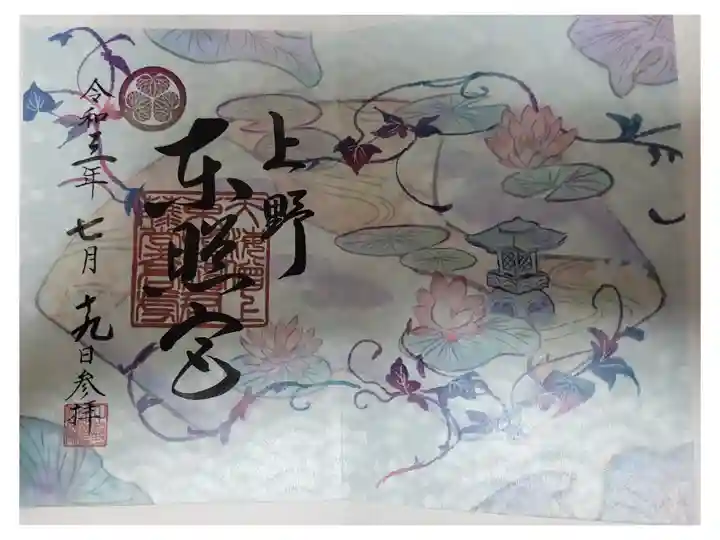 上野
東照宮
令和三年 七月 十九日参拝